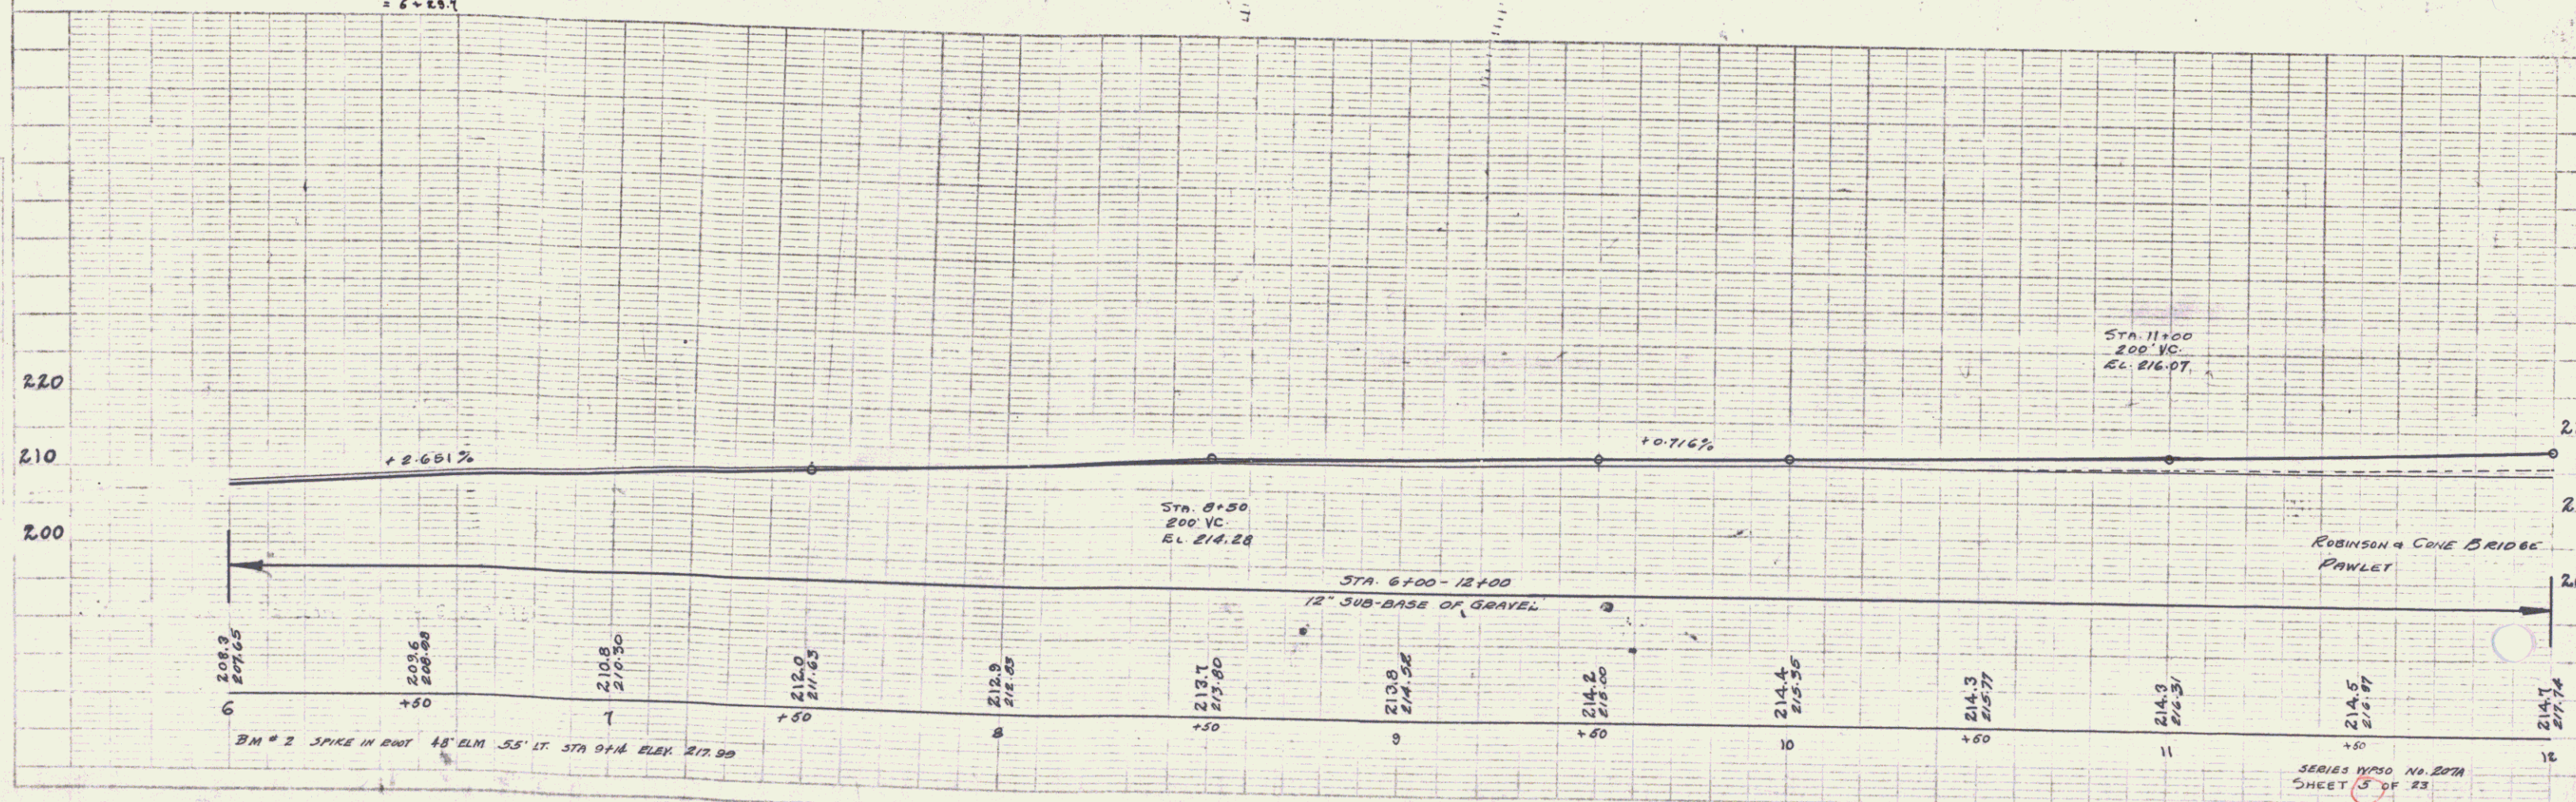 = 6+29.7
STA. 11+00
200' V.C.
EL. 216.07
220
210
200
+2.651%
+0.716%
STA. 8+50
200' VC.
EL. 214.28
ROBINSON & CONE BRIDGE
PAWLET
STA. 6+00 - 12+00
12" SUB-BASE OF GRAVEL
208.3
207.65
209.6
208.98
210.8
210.30
212.0
211.63
212.9
212.83
213.7
213.80
213.8
214.52
214.2
215.00
214.4
215.35
214.3
215.77
214.3
216.31
214.5
216.97
214.7
217.74
6 +50 7 +50 8 +50 9 +50 10 +50 11 +50 12
BM # 2 SPIKE IN ROOT 48" ELM 55' LT. STA 9+14 ELEV. 217.99
SERIES WPSO NO. 207A
SHEET 5 OF 23